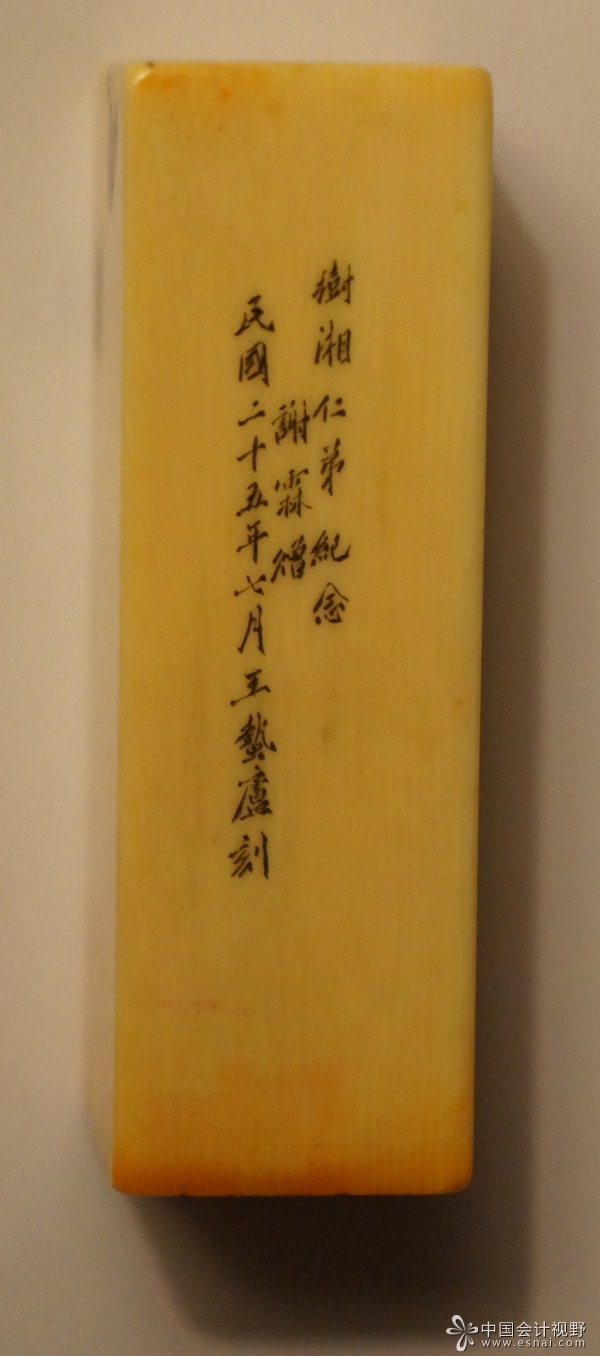 樹湘仁弟紀念
謝霖贈
民國二十五年七月王蟄廬刻
中国会计视野
www.esnai.com